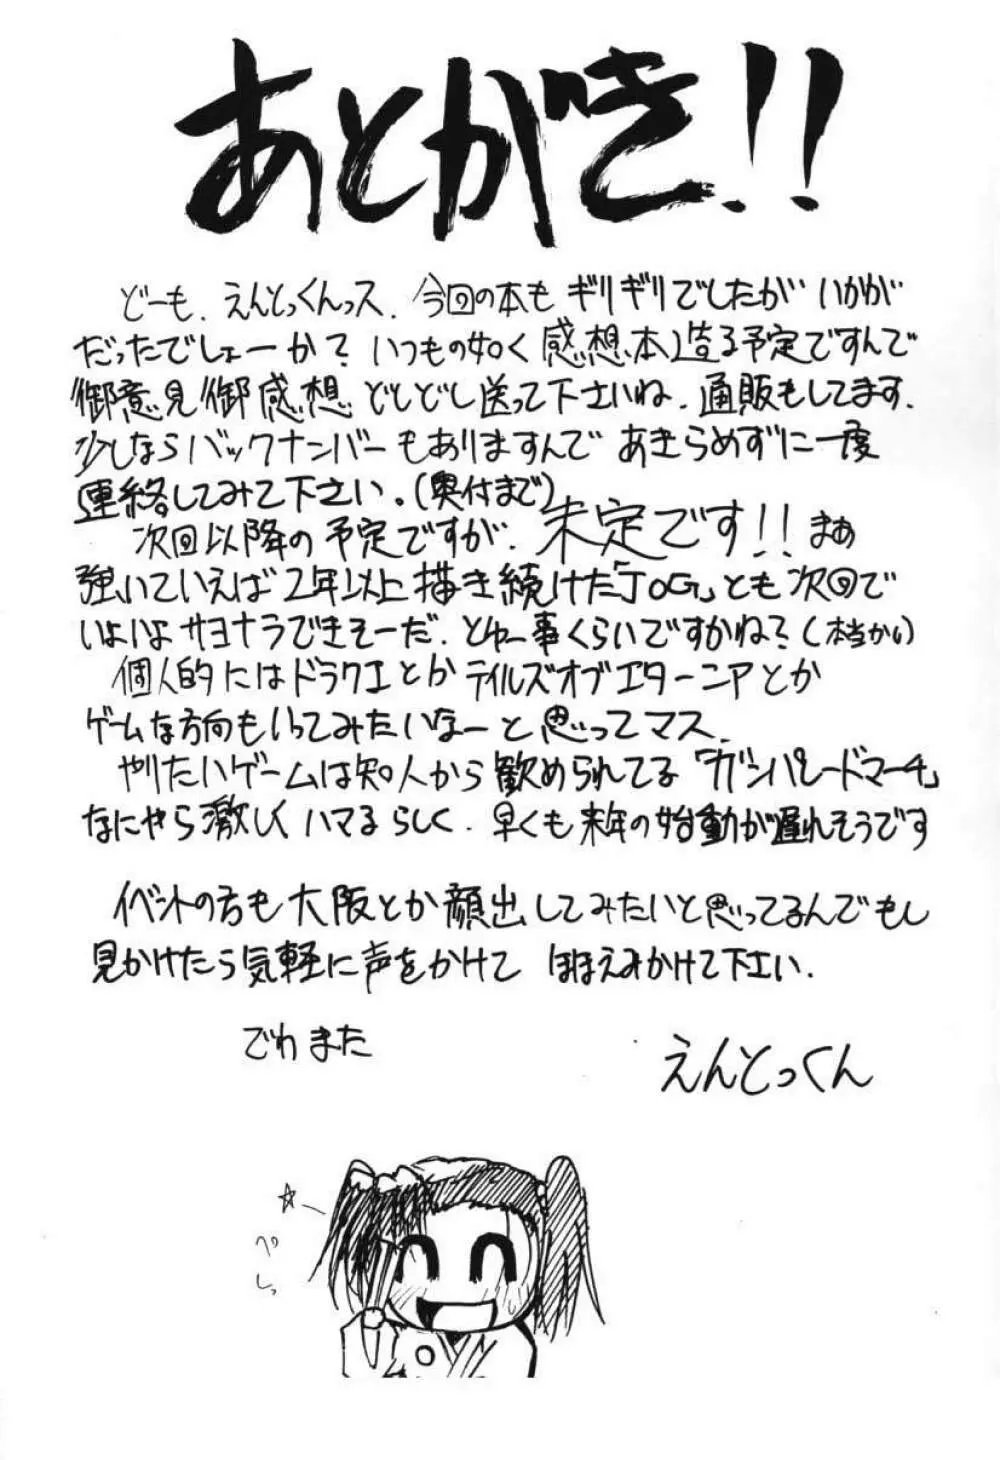 あとがき!!
どーも、えんとっくんっス、今回の本もギリギリでしたがいかが
だったでしょーか?いつもの如く感想本造る予定ですんで
御意見御感想どしどし送って下さいね、通販もしてます、
少しならバックナンバーもありますんであきらめずに一度
連絡してみて下さい。(奥付まで)
次回以降の予定ですが、未定です!!まぁ
強いていえば2年以上描き続けた「JOG」とも次回で
いよいよサヨナラできそーだ、とゆー事くらいですかね?(本当かい)
個人的にはドラクエとかテイルズオブエターニアとか
ゲームな方向もいってみたいなーと思ってマス、
やりたいゲームは知人から勧められてる「ガンパレードマーチ」
なにやら激しくハマるらしく、早くも来年の始動が遅れそうです
イベントの方も大阪とか顔出ししてみたいと思ってるんでもし
見かけたら気軽に声をかけてほほえみかけて下さい、
でわまた
えんとっくん
ペしっ